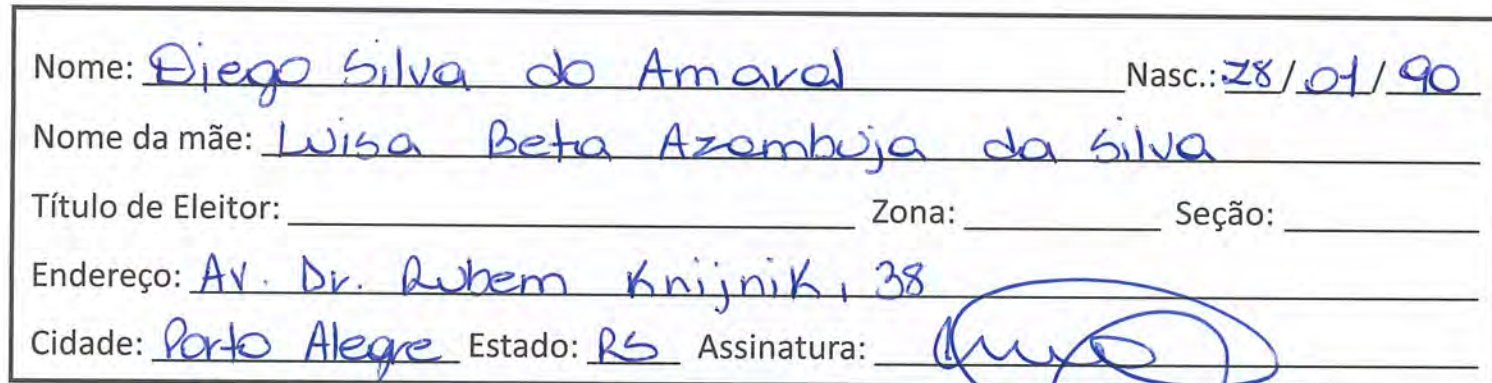 Nome: Diego Silva do Amaral Nasc.: 28/01/90
Nome da mãe: Luisa Beta Azambuja da Silva
Título de Eleitor: Zona: Seção:
Endereço: Av. Dr. Rubem Knijnik, 38
Cidade: Porto Alegre Estado: RS Assinatura: